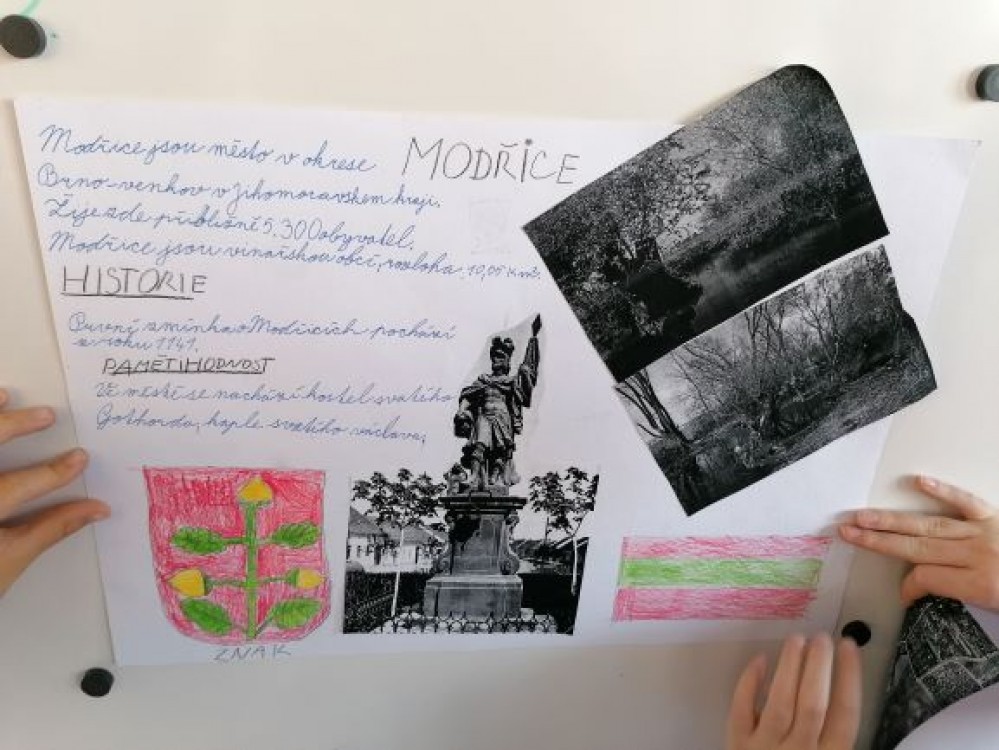 MODŘICE
Modřice jsou město v okrese
Brno-venkov v Jihomoravském kraji.
Žije zde přibližně 5.300 obyvatel.
Modřice jsou vinařskou obcí, rozloha 10,05 km².
HISTORIE
První zmínka o Modřicích pochází
z roku 1141.
PAMĚTIHODNOST
Ve městě se nachází kostel svatého
Gotharda, kaple svatého václava,
ZNAK